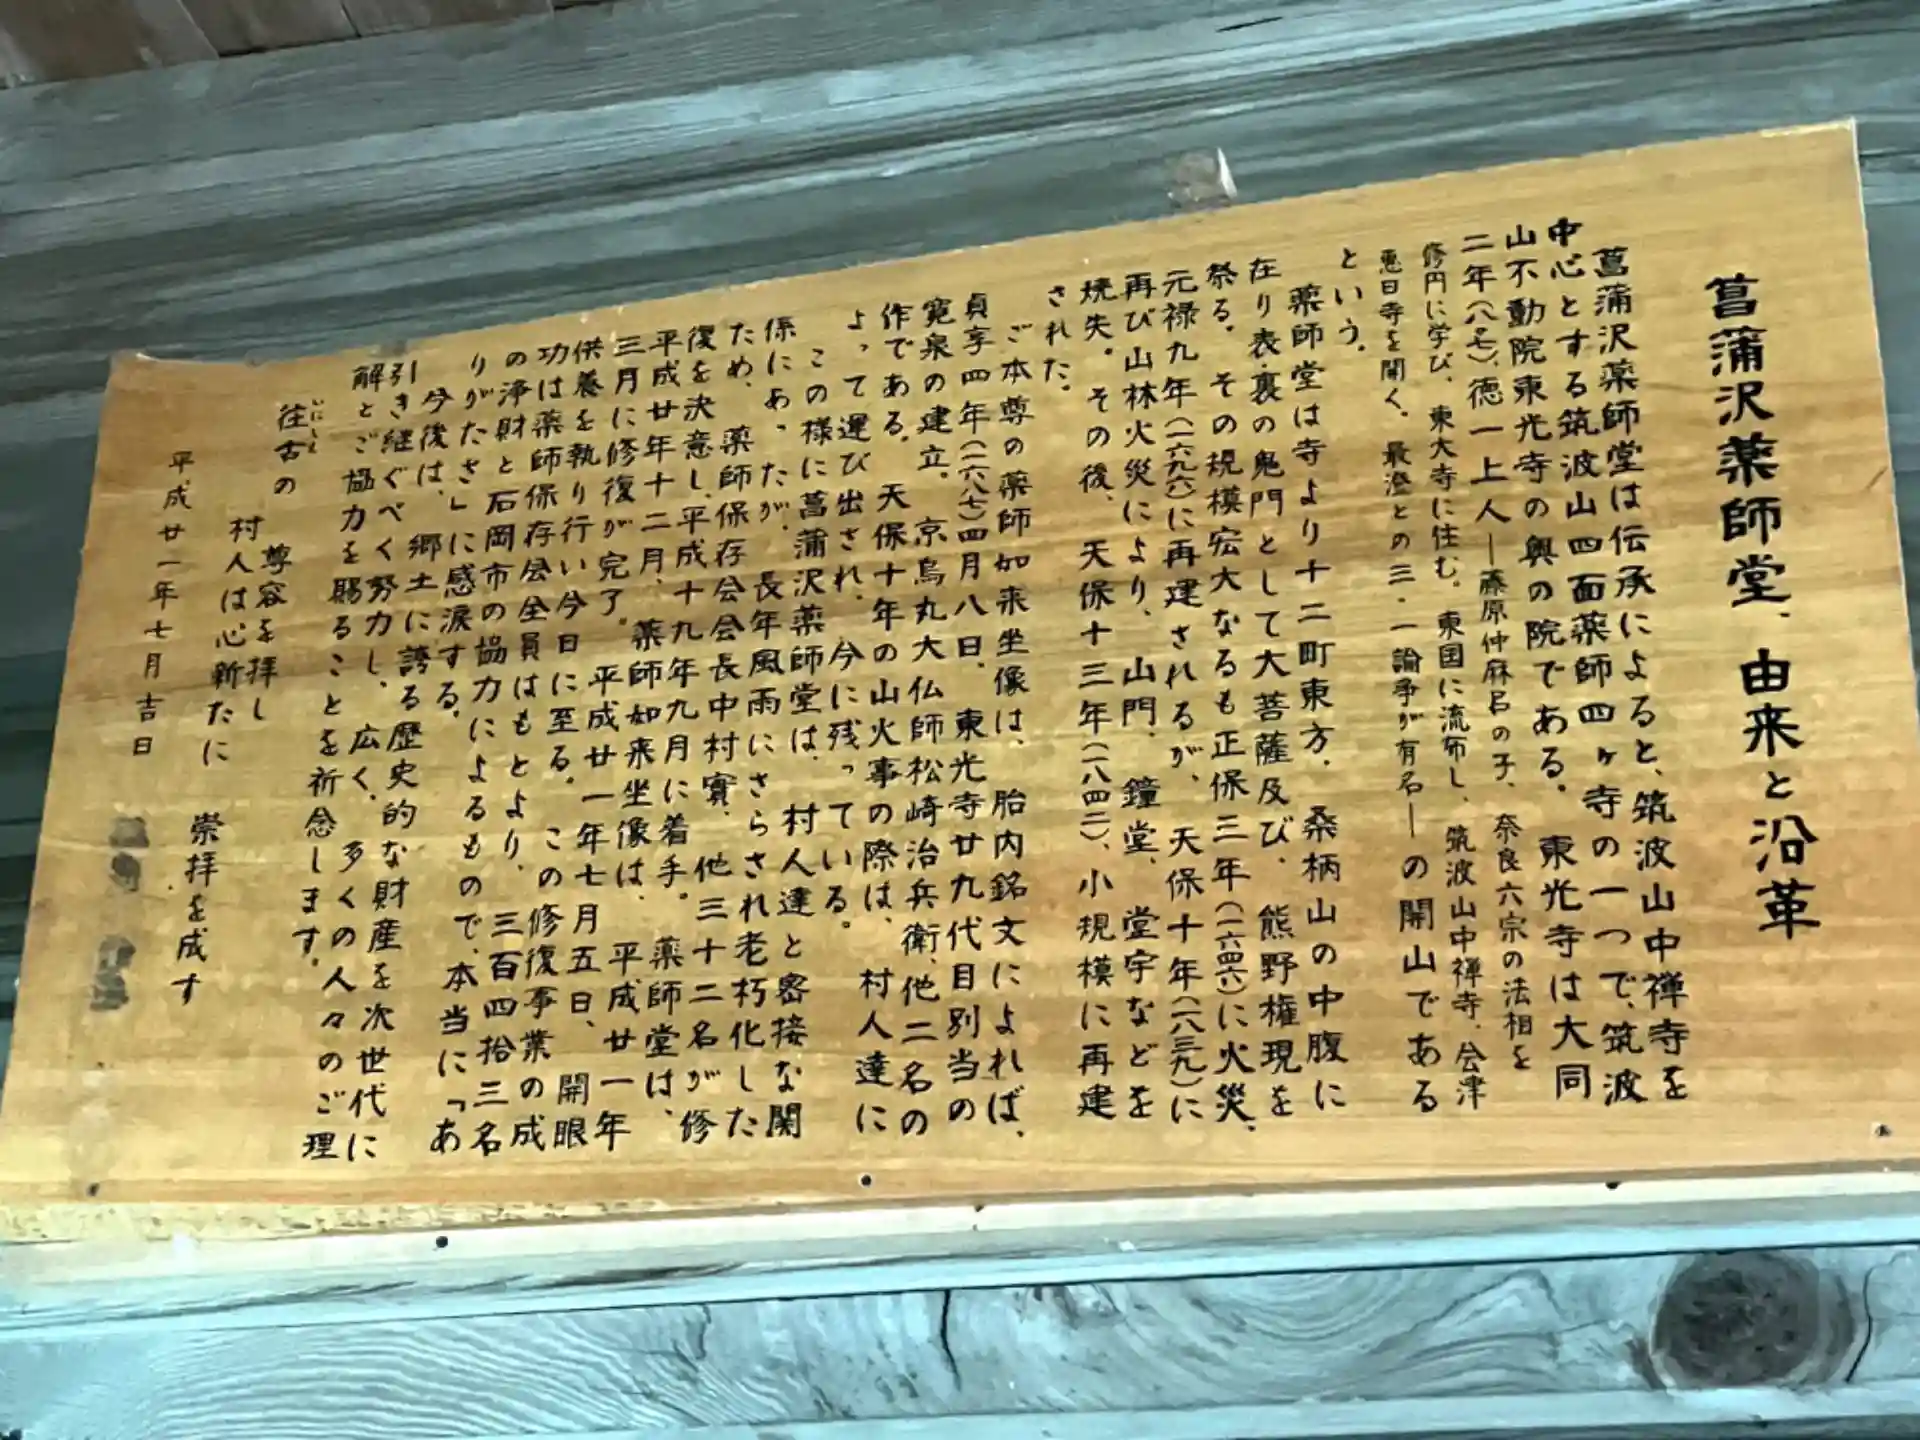 菖蒲沢薬師堂、由来と沿革
菖蒲沢薬師堂は伝承によると、筑波山中禅寺を
中心とする筑波山四面薬師四ヶ寺の一つで、筑波
山不動院東光寺の奥の院である。東光寺は大同
二年(八〇七)、徳一上人―藤原仲麻呂の子、奈良六宗の法相を
修円に学び、東大寺に住む。東国に流布し、筑波山中禅寺、会津
恵日寺を開く。最澄との三・一論争が有名―の開山である
という。
薬師堂は寺より十二町東方、桑柄山の中腹に
在り表・裏の鬼門として大菩薩及び、熊野権現を
祭る。その規模宏大なるも正保三年(一六四六)に火災、
元禄九年(一六九六)に再建されるが、天保十年(一八三九)に
再び山林火災により、山門、鐘堂、堂宇などを
焼失。その後、天保十三年(一八四二)、小規模に再建
された。
ご本尊の薬師如来坐像は、胎内銘文によれば、
貞享四年(一六八七)四月八日、東光寺廿九代目別当の
寛泉の建立。京烏丸大仏師松崎治兵衛、他二名の
作である。天保十年の山火事の際は、村人達に
よって運び出され、今に残っている。
この様に菖蒲沢薬師堂は、村人達と密接な関
係にあったが、長年風雨にさらされ老朽化した
ため、薬師保存会会長中村實、他三十二名が修
復を決意し、平成十九年九月に着手。薬師堂は、
平成廿年十二月、薬師如来坐像は、平成廿一年
三月に修復が完了。平成廿一年七月五日、開眼
供養を執り行い今日に至る。この修復事業の成
功は薬師保存会全員はもとより、三百四拾三名
の浄財と石岡市の協力によるもので、本当に「あ
りがたさ」に感涙する。
今後は、郷土に誇る歴史的な財産を次世代に
引き継ぐべく努力し、広く、多くの人々のご理
解とご協力を賜ることを祈念します。
往古の 尊容を拝し
いにしえ
村人は心新たに 崇拝を成す
平成廿一年七月吉日